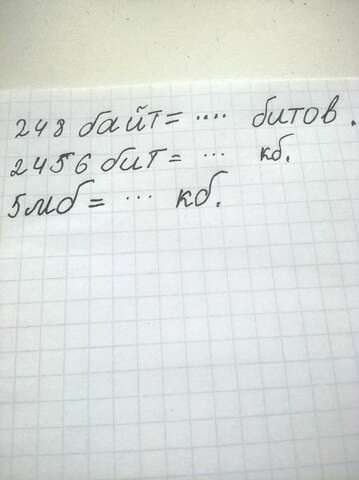 248 байт = .... битов.
2456 бит = ... кб.
5мб = ... кб.